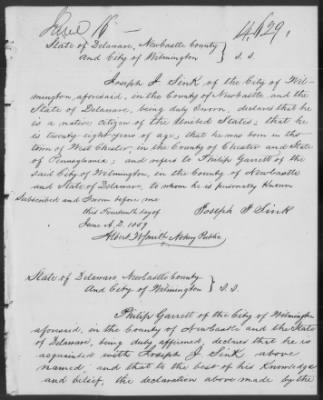 June 16 — 4,629,
State of Delaware, Newcastle County
and City of Wilmington } S.S.
Joseph J. Sink of the City of Wil-
mington, aforesaid, in the County of Newcastle and the
State of Delaware, being duly sworn, declares that he
is a native citizen of the United States; that he
is twenty eight years of age; that he was born in the
town of West Chester, in the County of Chester and State
of Pennsylvania; and refers to Philip Garrett of the
said City of Wilmington, in the County of Newcastle
and State of Delaware, to whom he is personally known
Subscribed and Sworn before me
this Fourteenth day of Joseph J Sink
June A.D. 1869
Albert W Smith Notary Public
State of Delaware Newcastle County
and City of Wilmington } S.S.
Philip Garrett of the City of Wilmington
aforesaid, in the County of Newcastle and the State
of Delaware, being duly affirmed, declares that he is
acquainted with Joseph J. Sink above
named, and that to the best of his knowledge
and belief, the declaration above made by the